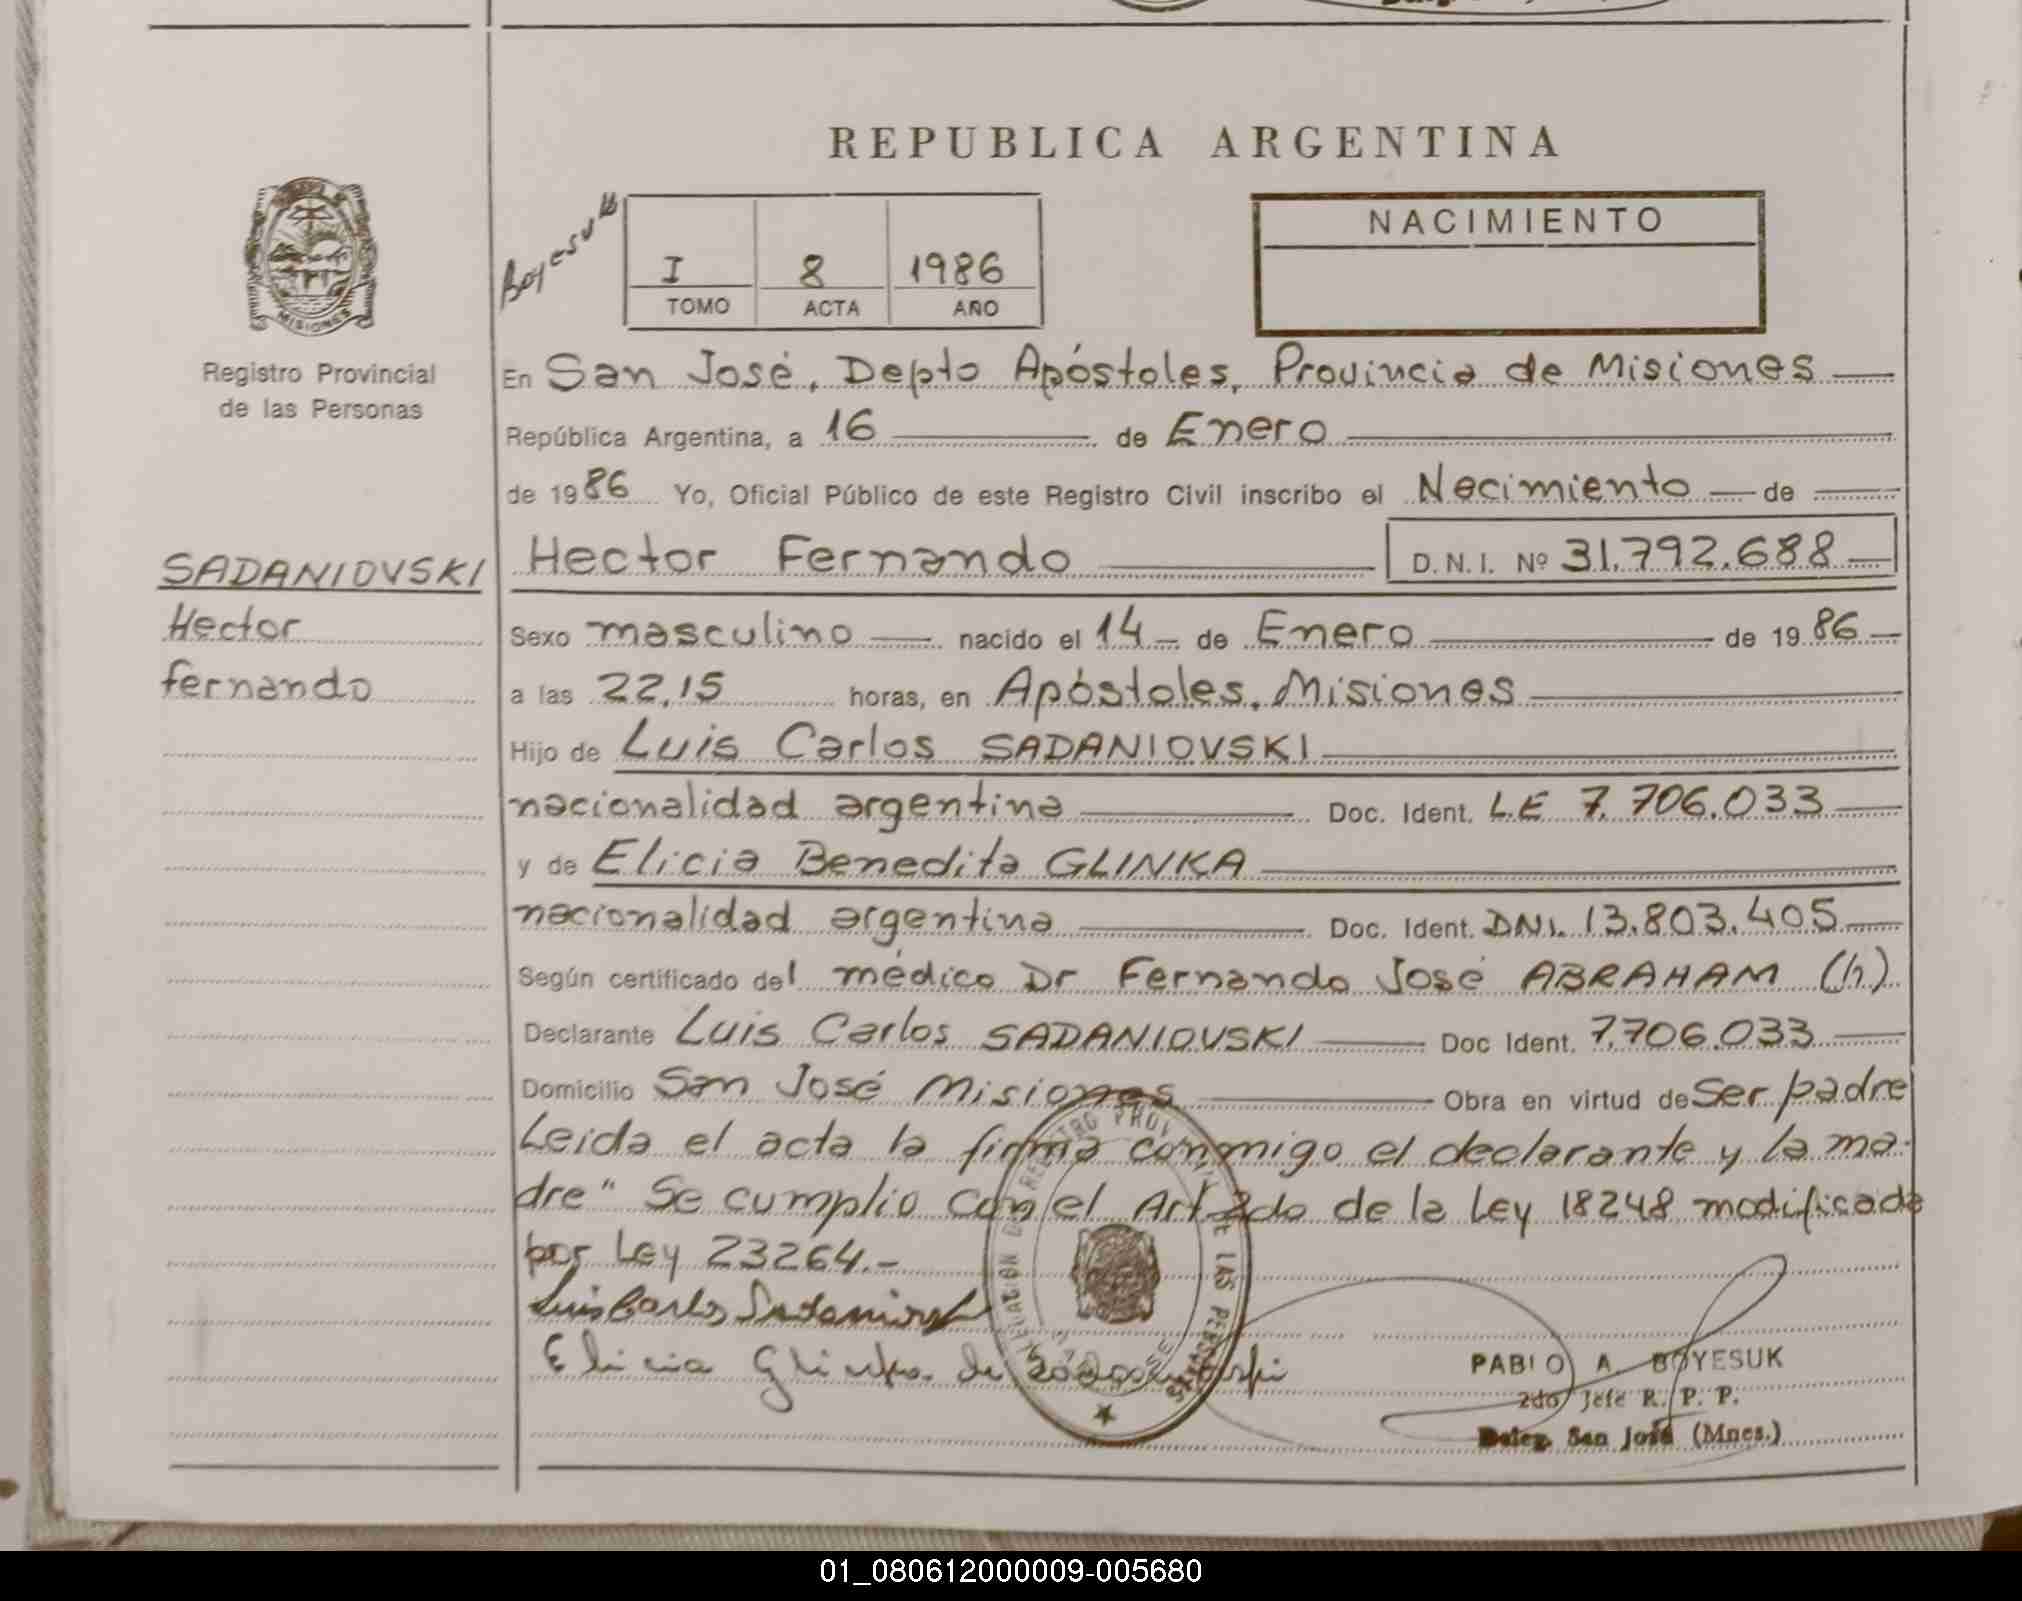 REPUBLICA ARGENTINA
MISIONES
Registro Provincial
de las Personas
Boyesuk
I 8 1986
TOMO ACTA AÑO
NACIMIENTO
En San José, Depto Apóstoles, Provincia de Misiones
República Argentina, a 16 de Enero
de 1986 Yo, Oficial Público de este Registro Civil inscribo el Nacimiento de
SADANIOVSKI
Hector
Fernando
Hector Fernando D.N.I. Nº 31.792.688
Sexo masculino nacido el 14 de Enero de 1986
a las 22,15 horas, en Apóstoles, Misiones
Hijo de Luis Carlos SADANIOVSKI
nacionalidad argentina Doc. Ident. LE 7.706.033
y de Elicia Benedita GLINKA
nacionalidad argentina Doc. Ident. DNI. 13.803.405
Según certificado del médico Dr Fernando José ABRAHAM (h)
Declarante Luis Carlos SADANIOVSKI Doc Ident. 7.706.033
Domicilio San José Misiones Obra en virtud de Ser padre
Leida el acta la firma conmigo el declarante y la ma-
dre" Se cumplio con el Art 2do de la Ley 18248 modificada
por Ley 23264.-
Luis Carlos
Elicia Glinka de
PABLO A. BOYESUK
2do Jefe R. P. P.
Deleg. San José (Mnes.)
01_080612000009-005680